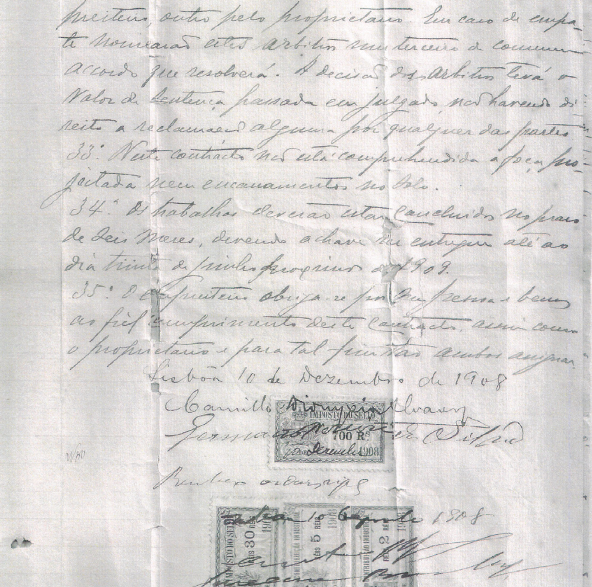 preiteiro outro pelo proprietario. Em caso de empa-
te nomearão estes arbitros um terceiro de commum
accordo que resolverá. A decisão dos arbitros terá o
valor de sentença passada em julgado, não havendo di
reito a reclamação alguma por qualquer das partes
33.º Neste contracto não está comprehendida a foça pro-
jectada nem encanamentos no solo.
34.º Os trabalhos deverão estar concluidos no praso
de seis meses, devendo a chave ser entregue até ao
dia trinta de junho proximo de 1909.
35.º O empreiteiro obriga-se por sua pessoa e bens
ao fiel cumprimento deste contracto, assim como
o proprietario e para tal fim vão ambos assignar
Lisboa 10 de Dezembro de 1908
Camillo Dionysio Alvarez
IMPOSTO DO SELLO
Germano da Silva
700 RS
Dezembro 1908
Recebi
IMPOSTO DO SELLO 30 RÉIS
5 RÉIS
2 RÉIS
Lisboa 10 1908